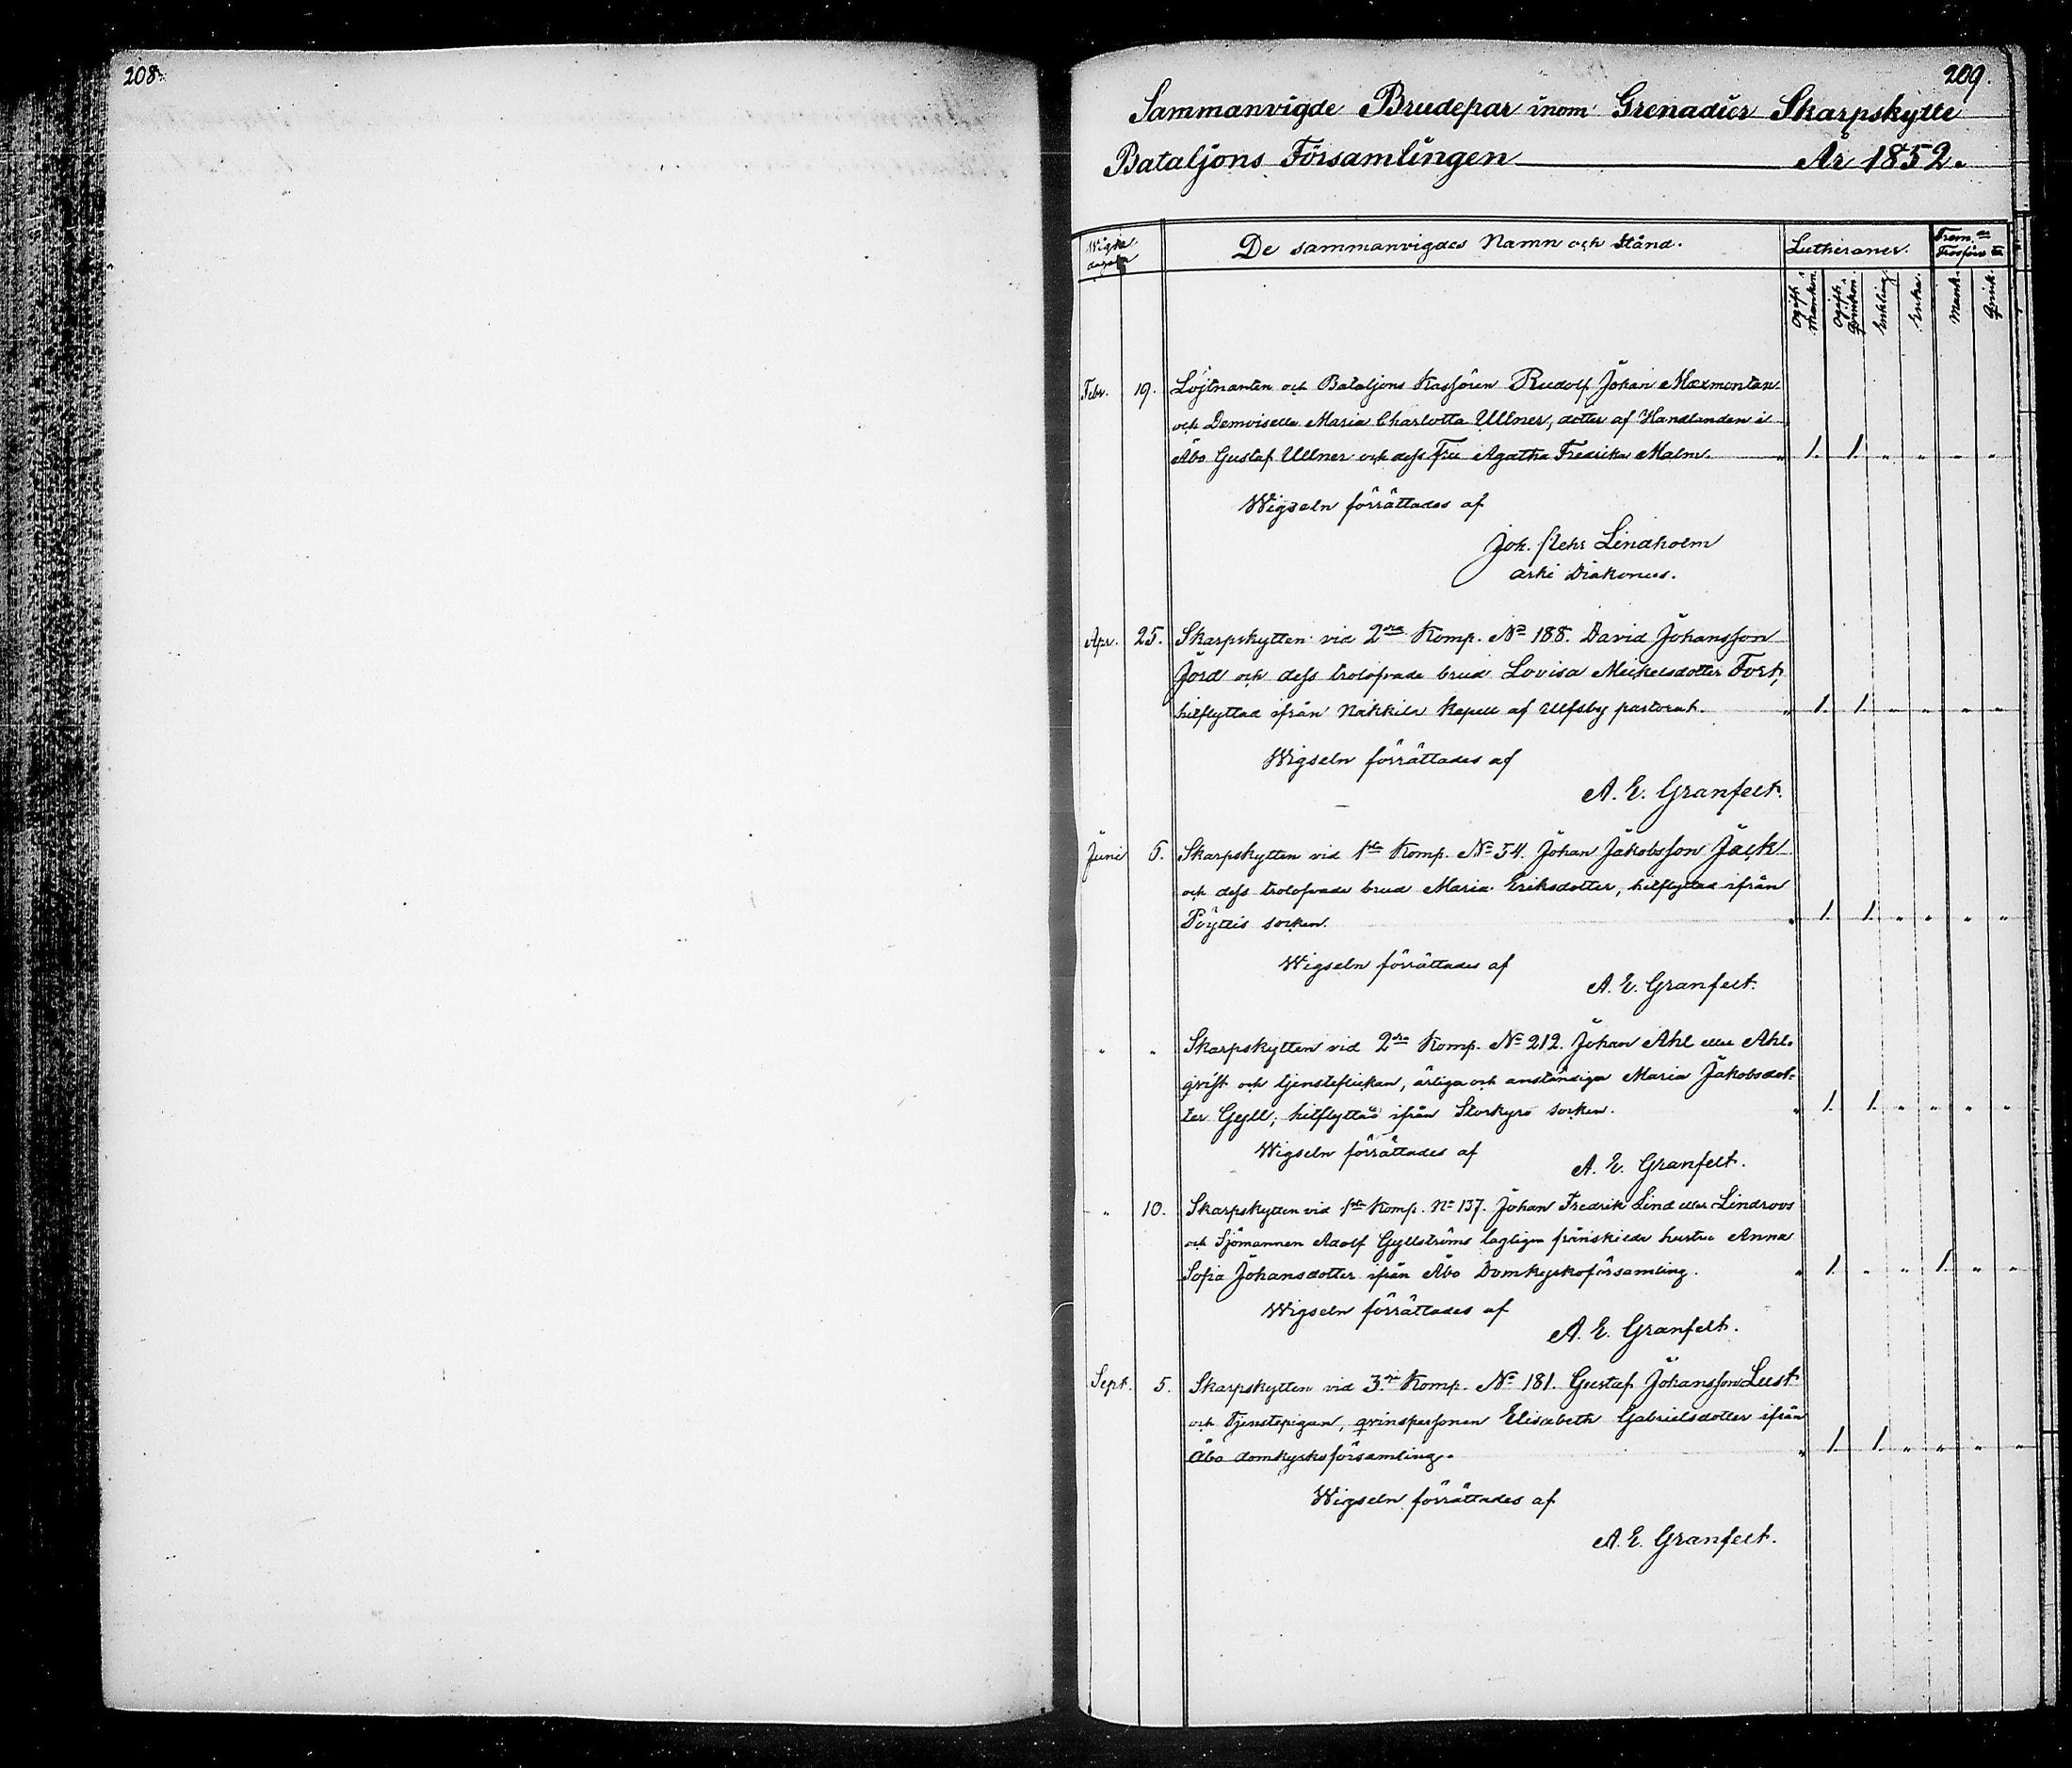 208.
209.
Sammanvigde Brudepar inom Grenadier Skarpskytte
Bataljons Församlingen År 1852.
De sammanvigdes Namn och Stånd.
Lutheraner.
Ogift Mankön.
Ogift Qvinkön.
Enkling.
Enka.
Mank.
Qvink.
Febr. 19. Löjtnanten och Bataljons Kassören Rudolf Johan Maxmontan
och Demoiselle Maria Charlotta Ullner, dotter af Handlanden i
Åbo Gustaf Ullner och dess Fru Agatha Fredrika Malm. " 1. 1. " " " "
Wigseln förrättades af
Joh. Lindholm
Arki Diakonus.
Apr. 25. Skarpskytten vid 2dra Komp. No 188. David Johansson
Jord och dess trolofvade brud Lovisa Mickelsdotter Fort,
hitflyttad ifrån Nakkila Kapell af Ulfsby pastorat. " 1. 1. " " " "
Wigseln förrättades af
A. E. Granfelt.
Juni 6. Skarpskytten vid 1sta Komp. No 54. Johan Jakobsson Jack
och dess trolofvade brud Maria Eriksdotter, hitflyttad ifrån
Pöyttis socken. " 1. 1. " " " "
Wigseln förrättades af
A. E. Granfelt.
" " Skarpskytten vid 2dra Komp. No 212. Johan Ahl eller Ahl-
qvist och tjensteflickan, ärliga och anständiga Maria Jakobsdot-
ter Gyll, hitflyttad ifrån Storkyro socken. " 1. 1. " " " "
Wigseln förrättades af
A. E. Granfelt.
" 10. Skarpskytten vid 1sta Komp. No 137. Johan Fredrik Lind eller Lindroos
och Sjömannen Adolf Gyllströms lagligen frånskilda hustru Anna
Sofia Johansdotter ifrån Åbo Domkyrkoförsamling. " 1. " " 1. " "
Wigseln förrättades af
A. E. Granfelt.
Sept. 5. Skarpskytten vid 3dje Komp. No 181. Gustaf Johansson Lust
och Tjenstepigan, qvinspersonen Elisabeth Gabrielsdotter ifrån
Åbo domkyrkoförsamling. " 1. 1. " " " "
Wigseln förrättades af
A. E. Granfelt.